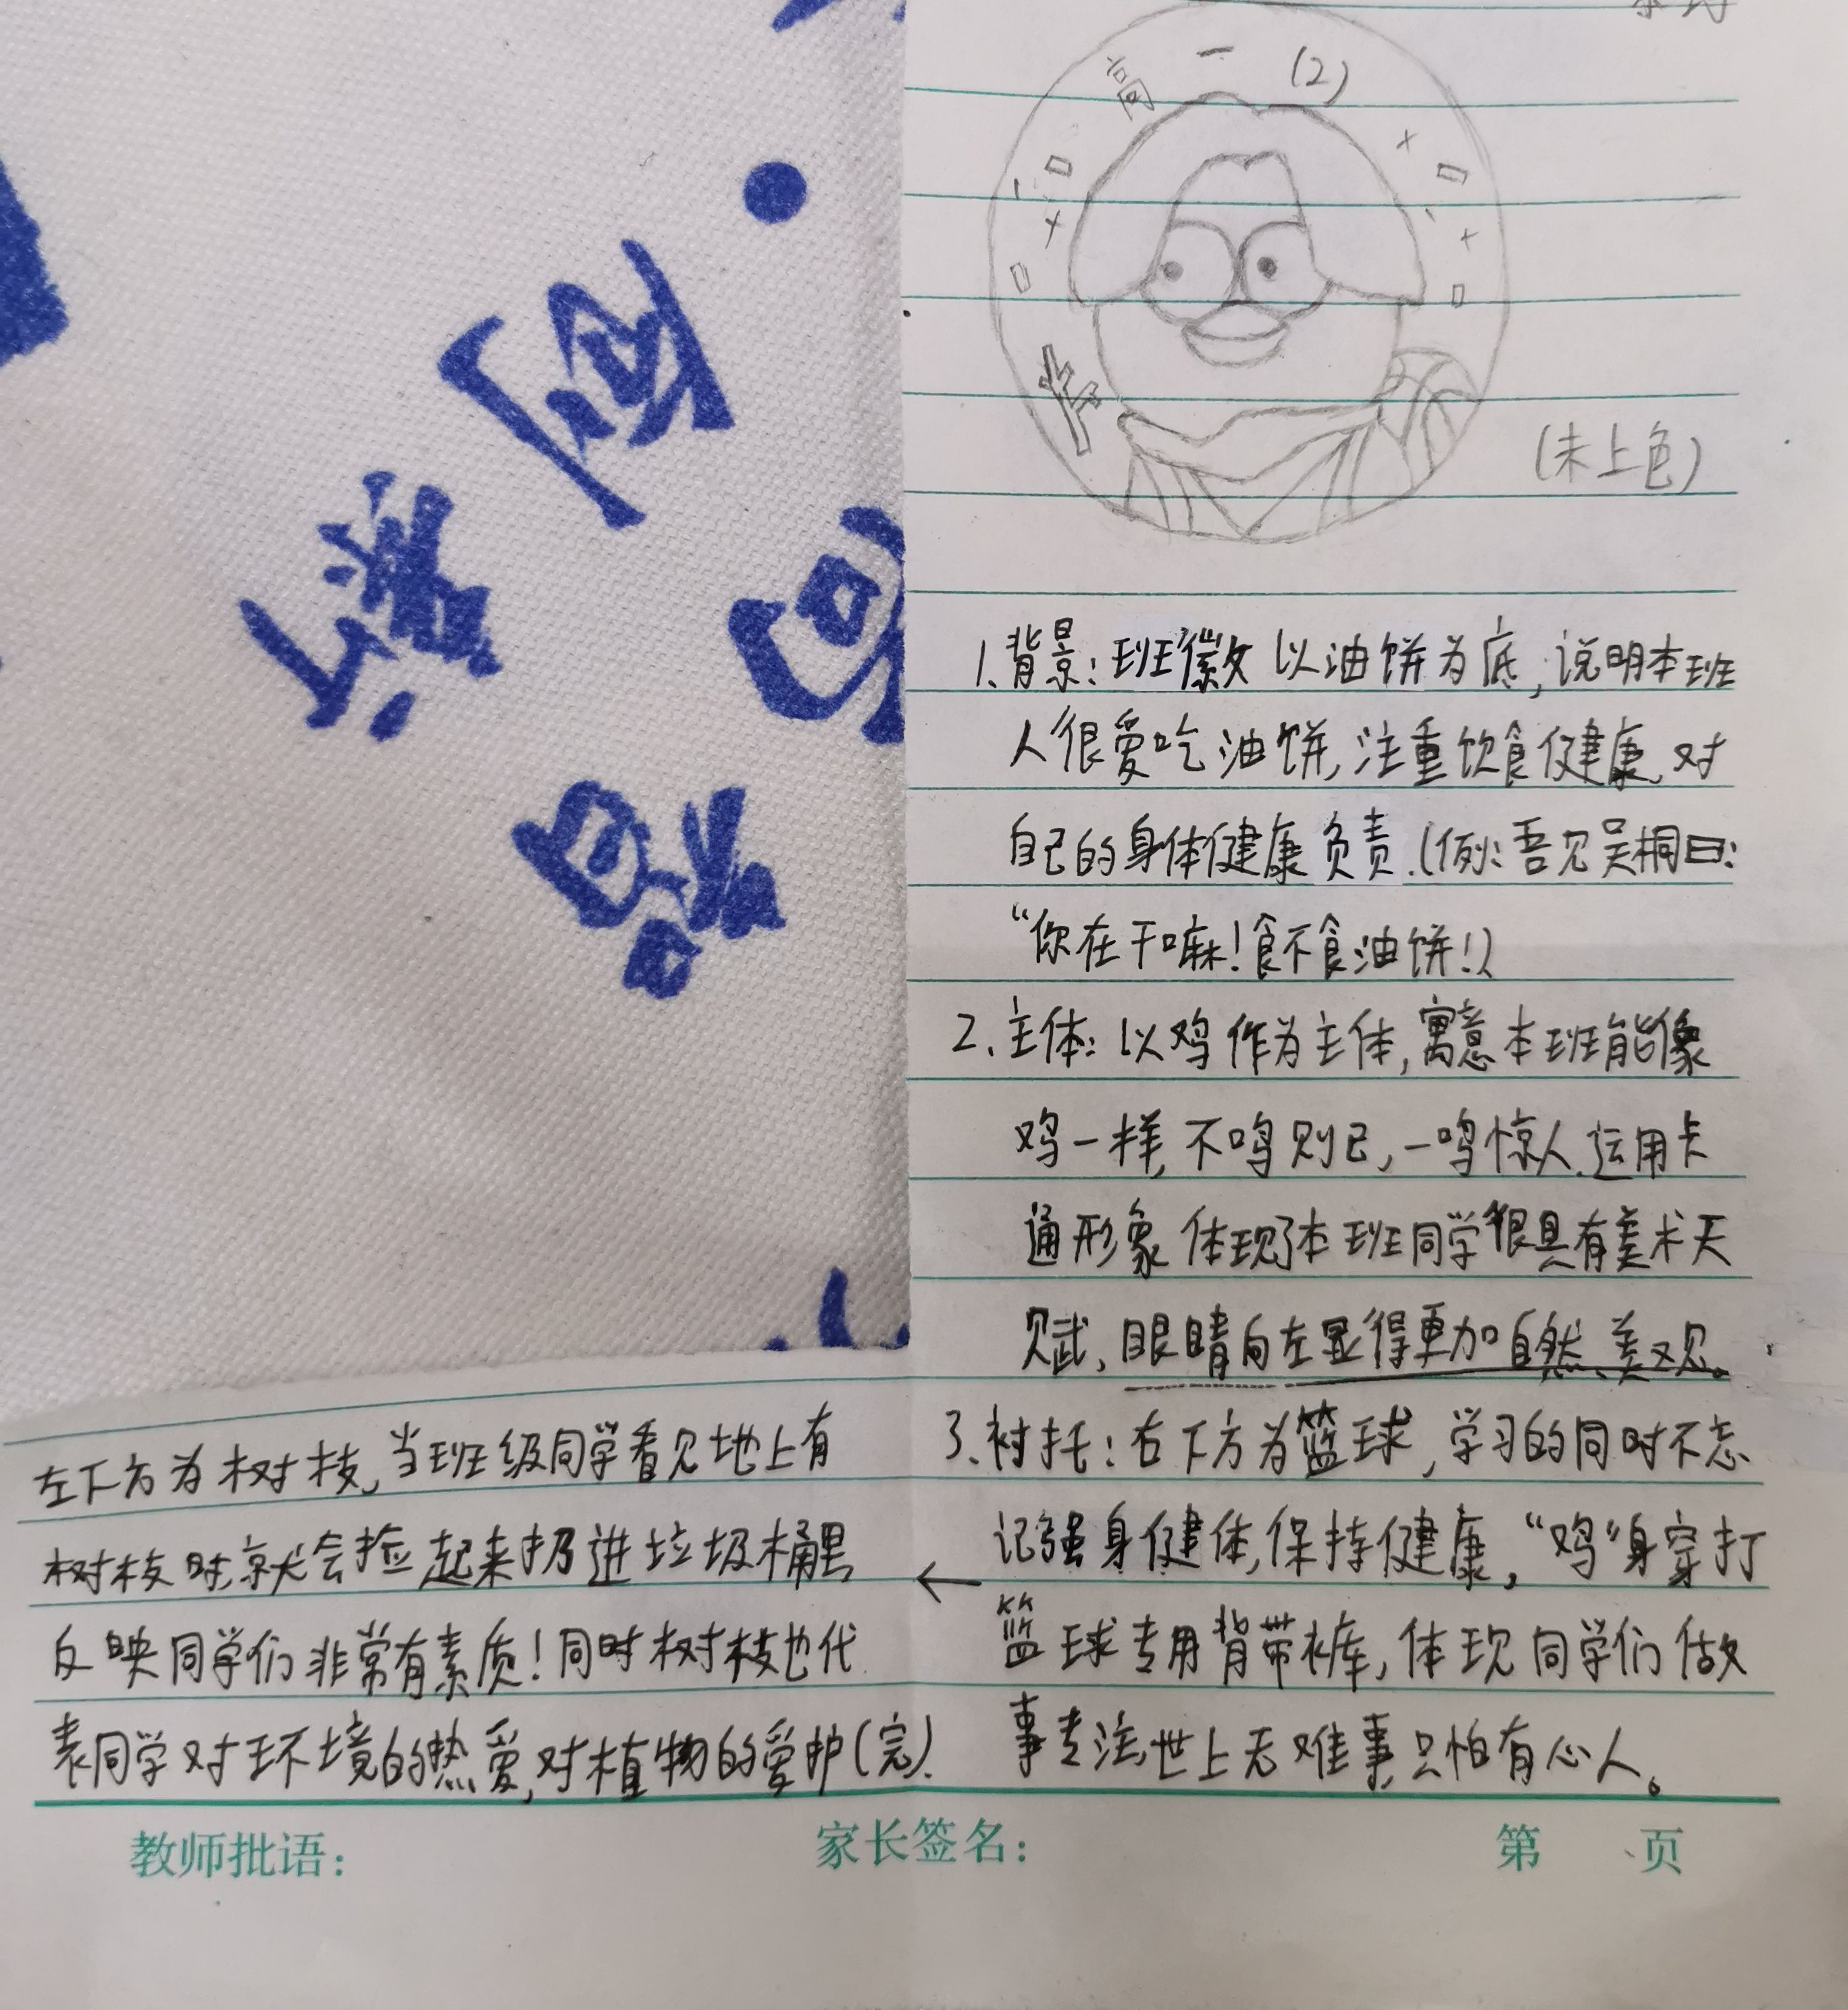 高一(2)
(未上色)
1、背景：班徽以油饼为底，说明本班
人很爱吃油饼，注重饮食健康，对
自己的身体健康负责.(例：吾见吴桐曰：
“你在干嘛！食不食油饼！)
2、主体：以鸡作为主体，寓意本班能像
鸡一样，不鸣则已，一鸣惊人.运用卡
通形象体现了本班同学很具有美术天
赋，眼睛向左显得更加自然、美观。
3、衬托：右下方为篮球，学习的同时不忘
记强身健体，保持健康，“鸡”身穿打
篮球专用背带裤，体现同学们做
事专注，世上无难事，只怕有心人。
←
左下方为树枝，当班级同学看见地上有
树枝时，就会捡起来扔进垃圾桶里
反映同学们非常有素质！同时树枝也代
表同学对环境的热爱，对植物的爱护(完).
教师批语：
家长签名：
第 页